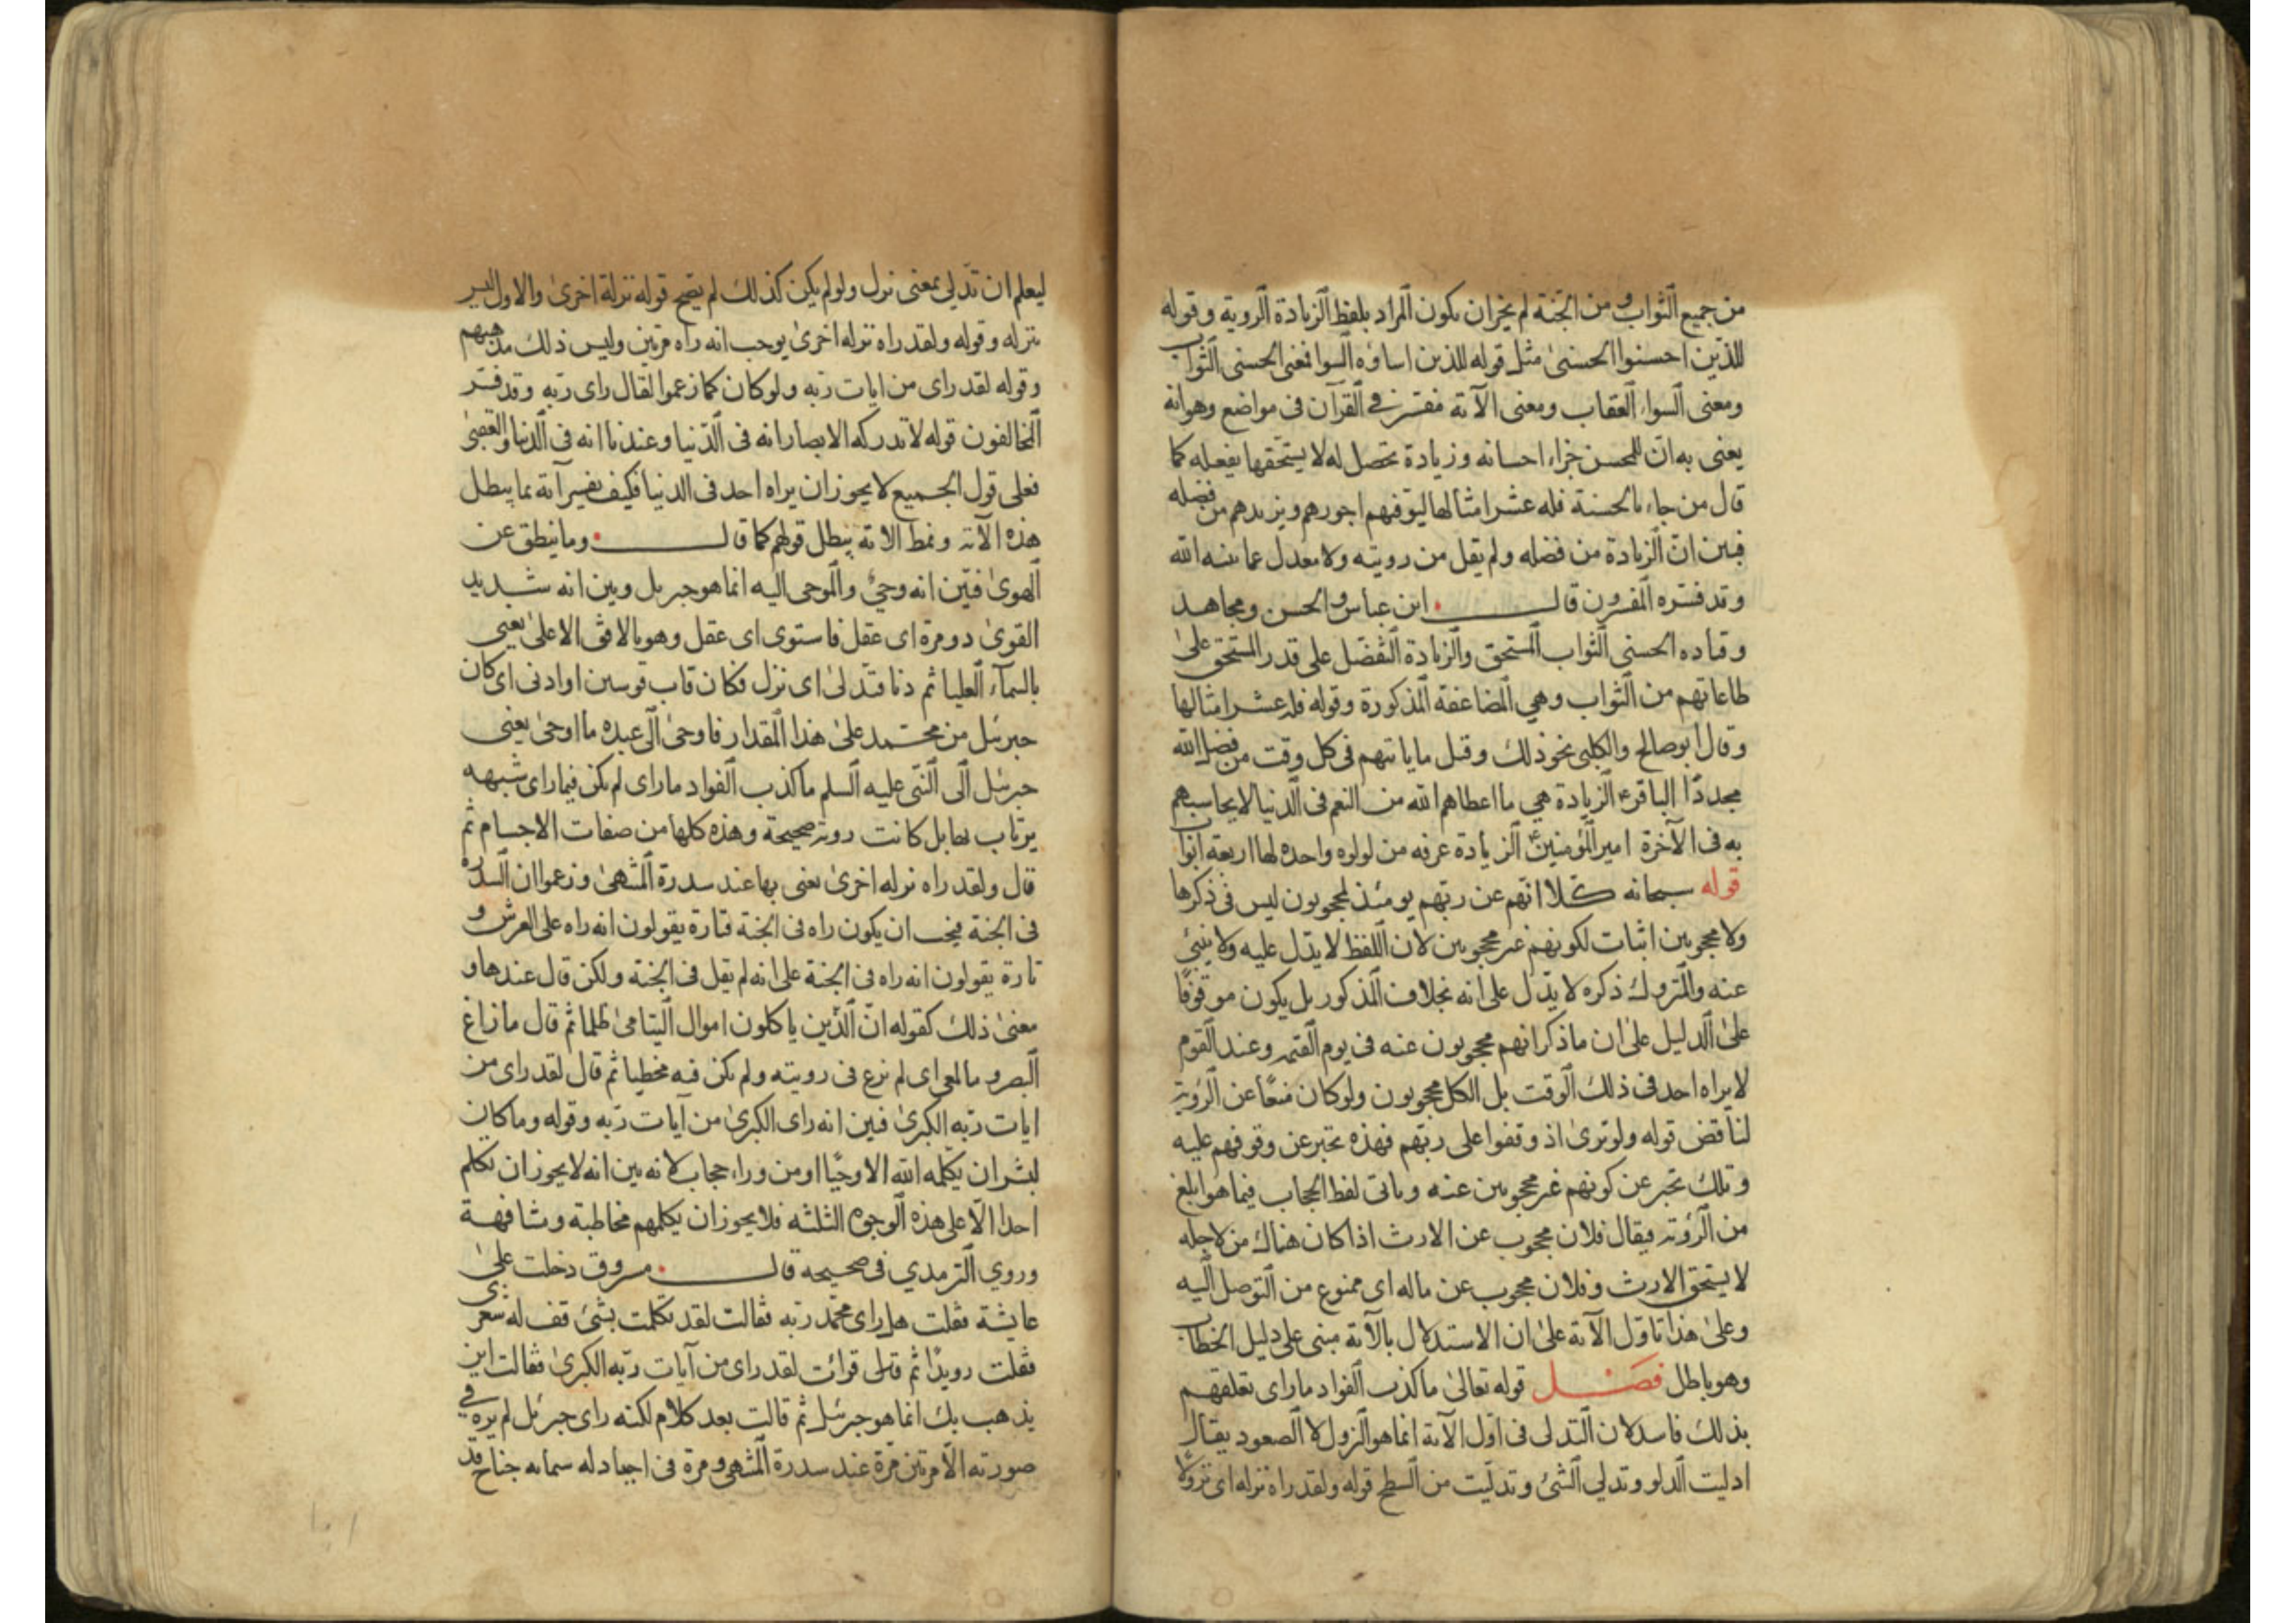 من جميع الثواب و من الجنة لم يخبر ان يكون المراد بلفظ الزيادة الروية وقوله
للذين احسنوا الحسنى مثل قوله للذين اساؤه السوا فمعنى الحسنى الثواب
ومعنى السواء العقاب ومعنى الآية مفسر في القرآن فى مواضع وهو انه
يعنى به ان للمحسن جزاء احسانه وزيادة تحصل له لا يستحقها بفعله كما
قال من جاء بالحسنة فله عشر امثالها ليوفيهم اجورهم ويزيدهم من فضله
فبين ان الزيادة من فضله ولم يقل من رويته ولا معدل عما بينه الله
وقد فسره المفسرون قال ابن عباس و الحسن ومجاهد
وقتاده الحسنى الثواب المستحق والزيادة التفضل على قدر المستحق على
طاعاتهم من الثواب وهي المضاعفة المذكورة وقوله فله عشر امثالها
وقال ابو صالح والكلبى نحو ذلك وقيل ما ياتيهم فى كل وقت من فضل الله
مجددا الباقر ع الزيادة هي ما اعطاهم الله من النعم فى الدنيا لا يحاسبهم
به فى الآخرة امير المؤمنين ع الزيادة غرفه من لولوه واحده لها اربعة ابواب
قوله سبحانه كلا انهم عن ربهم يومئذ لمحجوبون ليس فى ذكرها
ولا محجوبين اثبات لكونهم غير محجوبين لان اللفظ لا يدل عليه ولا ينبئ
عنه والمتروك ذكره لا يدل على انه بخلاف المذكور بل يكون موقوفا
على الدليل على ان ما ذكر انهم محجوبون عنه فى يوم القيمه وعند القوم
لا يراه احد فى ذلك الوقت بل الكل محجوبون ولو كان منعا عن الروية
لناقض قوله ولو ترى اذ وقفوا على ربهم فهذه تخبر عن وقوفهم عليه
وتلك تخبر عن كونهم غير محجوبين عنه وياتى لفظ الحجاب فيما هو ابلغ
من الرؤية فيقال فلان محجوب عن الارث اذا كان هناك من لاجله
لا يستحق الارث وفلان محجوب عن ماله اى ممنوع من التوصل اليه
وعلى هذا تاول الآية على ان الاستدلال بالآية مبنى على دليل الخطاب
وهو باطل فصل قوله تعالى ما كذب الفواد ما راى تعلقهم
بذلك فاسد لان التدلى فى اول الآية انما هو النزول لا الصعود يقال
ادليت الدلو وتدلي الشئ وتدليت من السطح قوله ولقد راه نزله اى نزولا
ليعلم ان تدلى بمعنى نزل ولو لم يكن كذلك لم يصح قوله نزلة اخرى والاول ليس
بنزله وقوله ولقد راه نزله اخرى يوجب انه راه مرتين وليس ذلك مذهبهم
وقوله لقد راى من ايات ربه ولو كان كما زعموا لقال راى ربه وقد فسر
المخالفون قوله لا تدركه الابصار انه فى الدنيا وعندنا انه فى الدنيا والعقبى
فعلى قول الجميع لا يجوز ان يراه احد فى الدنيا فكيف يفسر آية بما يبطل
هذه الآية ونمط الاية يبطل قولهم كما قال وما ينطق عن
الهوى فبين انه وحي والموحى اليه انما هو جبريل وبين انه شديد
القوى ذو مرة اى عقل فاستوى اى عقل وهو بالافق الاعلى يعنى
بالسماء العليا ثم دنا فتدلى اى نزل فكان قاب قوسين او ادنى اى كان
جبرئيل من محمد على هذا المقدار فاوحى الى عبده ما اوحى يعنى
جبرئيل الى النبى عليه السلم ما كذب الفواد ما راى لم يكن فيما راى شبهه
يرتاب بها بل كانت روية صحيحة وهذه كلها من صفات الاجسام ثم
قال ولقد راه نزله اخرى يعنى بها عند سدرة المنتهى وزعموا ان السدره
فى الجنة فيجب ان يكون راه فى الجنة فتارة يقولون انه راه على العرش و
تارة يقولون انه راه فى الجنة على انه لم يقل فى الجنة ولكن قال عندها و
معنى ذلك كقوله ان الذين ياكلون اموال اليتامى ظلما ثم قال ما زاغ
البصر وما طغى اى لم يزغ فى رويته ولم يكن فيه مخطيا ثم قال لقد راى من
ايات ربه الكبرى فبين انه راى الكبرى من آيات ربه وقوله وما كان
لبشر ان يكلمه الله الا وحيا او من وراء حجاب لانه بين انه لا يجوز ان يكلم
احدا الا على هذه الوجوه الثلثه فلا يجوز ان يكلمهم مخاطبة ومشافهة
وروي الترمدي فى صحيحه قال مسروق دخلت على
عايشة فقلت هل راى محمد ربه فقالت لقد تكلمت بشئ قف له شعرى
فقلت رويدا ثم قرات لقد راى من آيات ربه الكبرى فقالت اين
يذهب بك انما هو جبرئيل ثم قالت بعد كلام لكنه راى جبرئيل لم يره في
صورته الا مرتين مرة عند سدرة المنتهى و مرة فى اجياد له ستمايه جناح قد